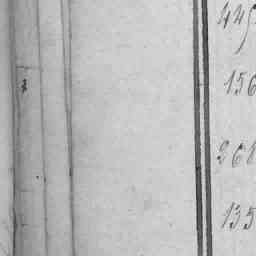 445
156
268
135